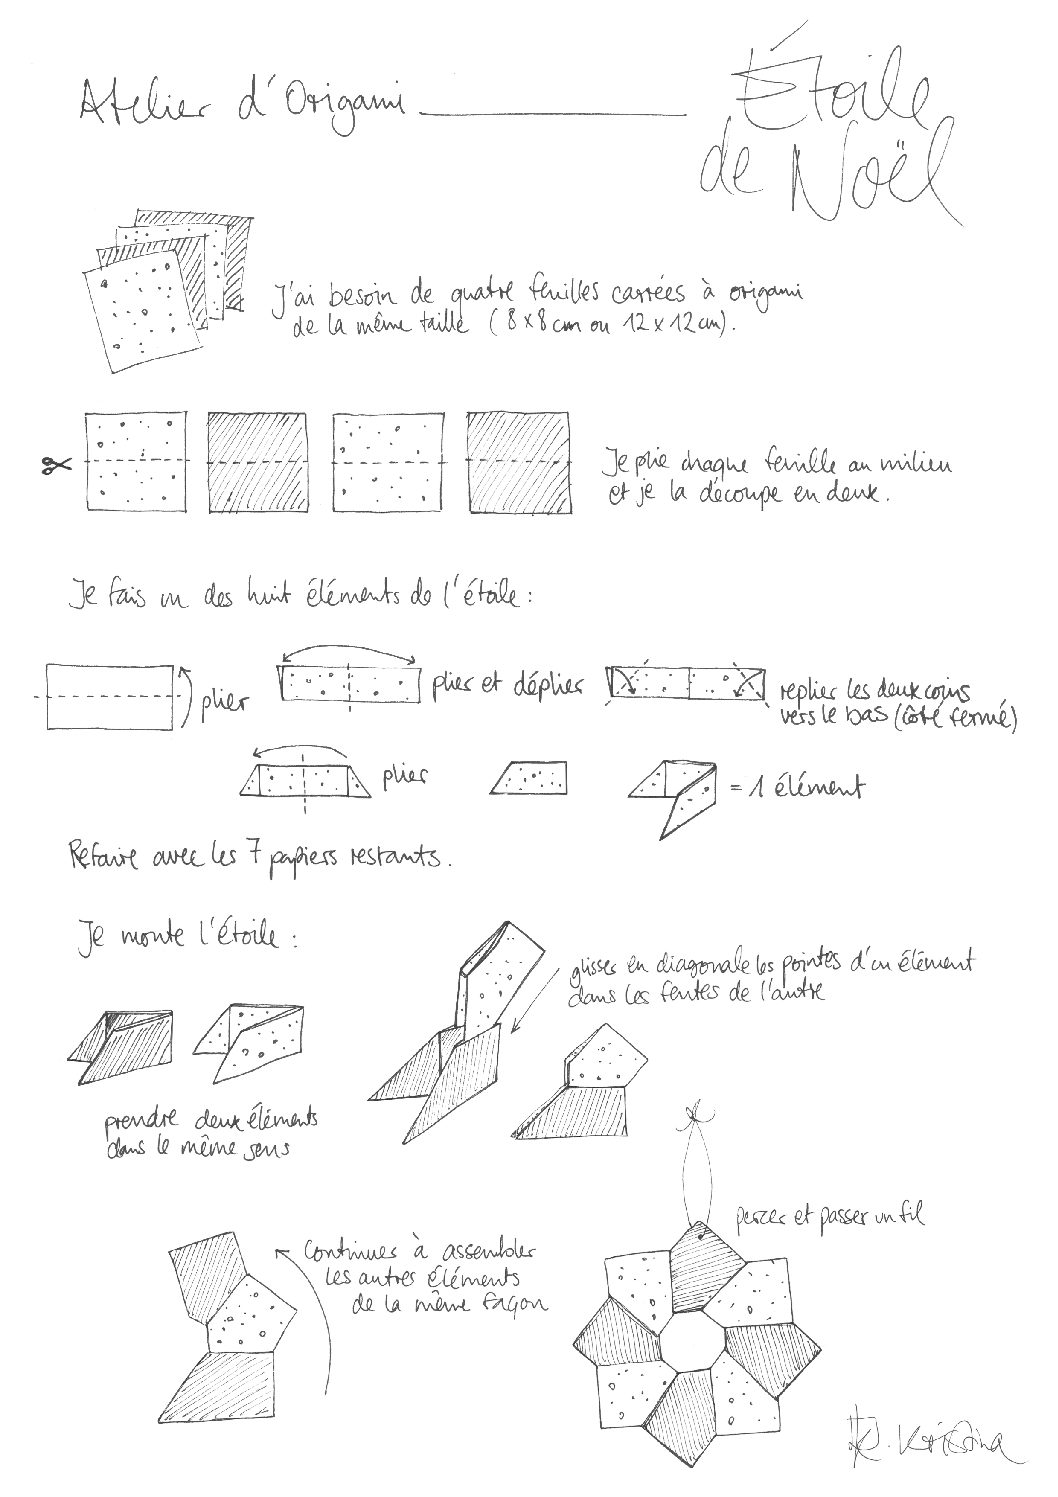 Atelier d'Origami
Étoile
de Noël
J'ai besoin de quatre feuilles carrées à origami
de la même taille (8x8cm ou 12x12cm).
Je plie chaque feuille au milieu
et je la découpe en deux.
Je fais un des huit éléments de l'étoile :
plier
plier et déplier
replier les deux coins
vers le bas (côté fermé)
plier
= 1 élément
Refaire avec les 7 papiers restants.
Je monte l'étoile :
glisser en diagonale les pointes d'un élément
dans les fentes de l'autre
prendre deux éléments
dans le même sens
percer et passer un fil
Continuer à assembler
les autres éléments
de la même façon
Kristina